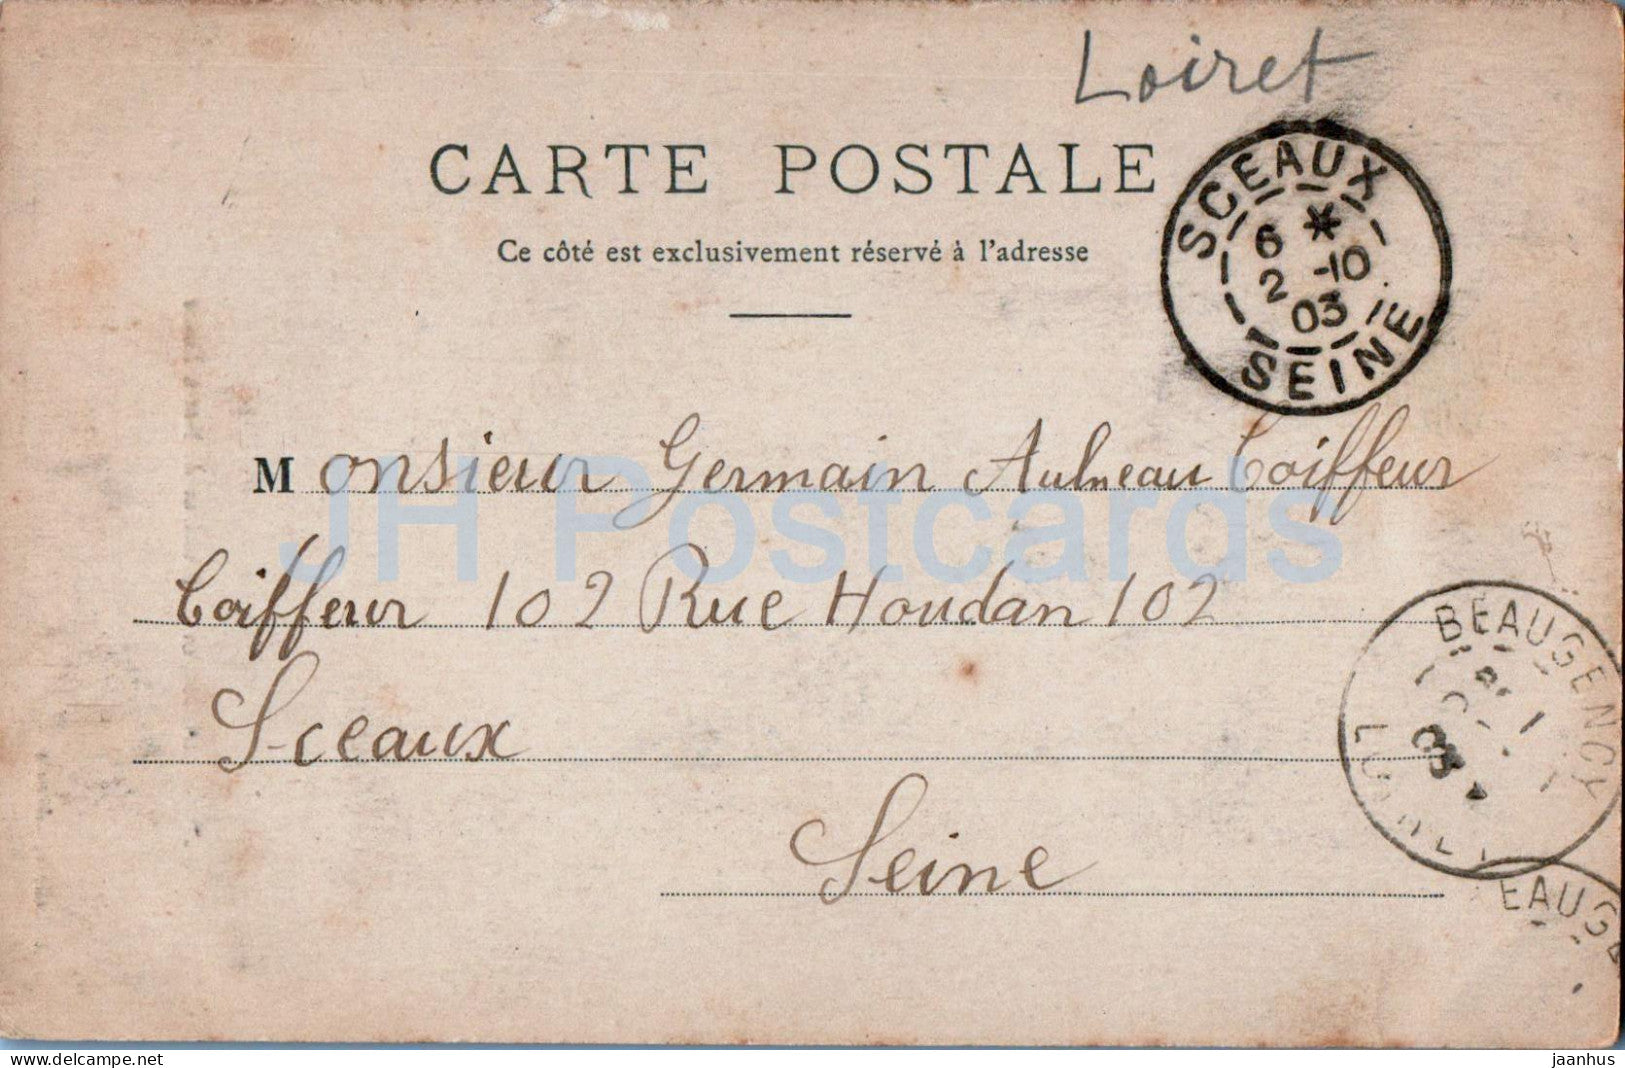 Loiret
CARTE POSTALE
Ce côté est exclusivement réservé à l'adresse
SCEAUX
6 *
2 -10
03
SEINE
Monsieur Germain Aulneau Coiffeur
Coiffeur 102 Rue Houdan 102
Sceaux
Seine
BEAUGENCY
EAUGE
JH Postcards
delcampe.net
jaanhus